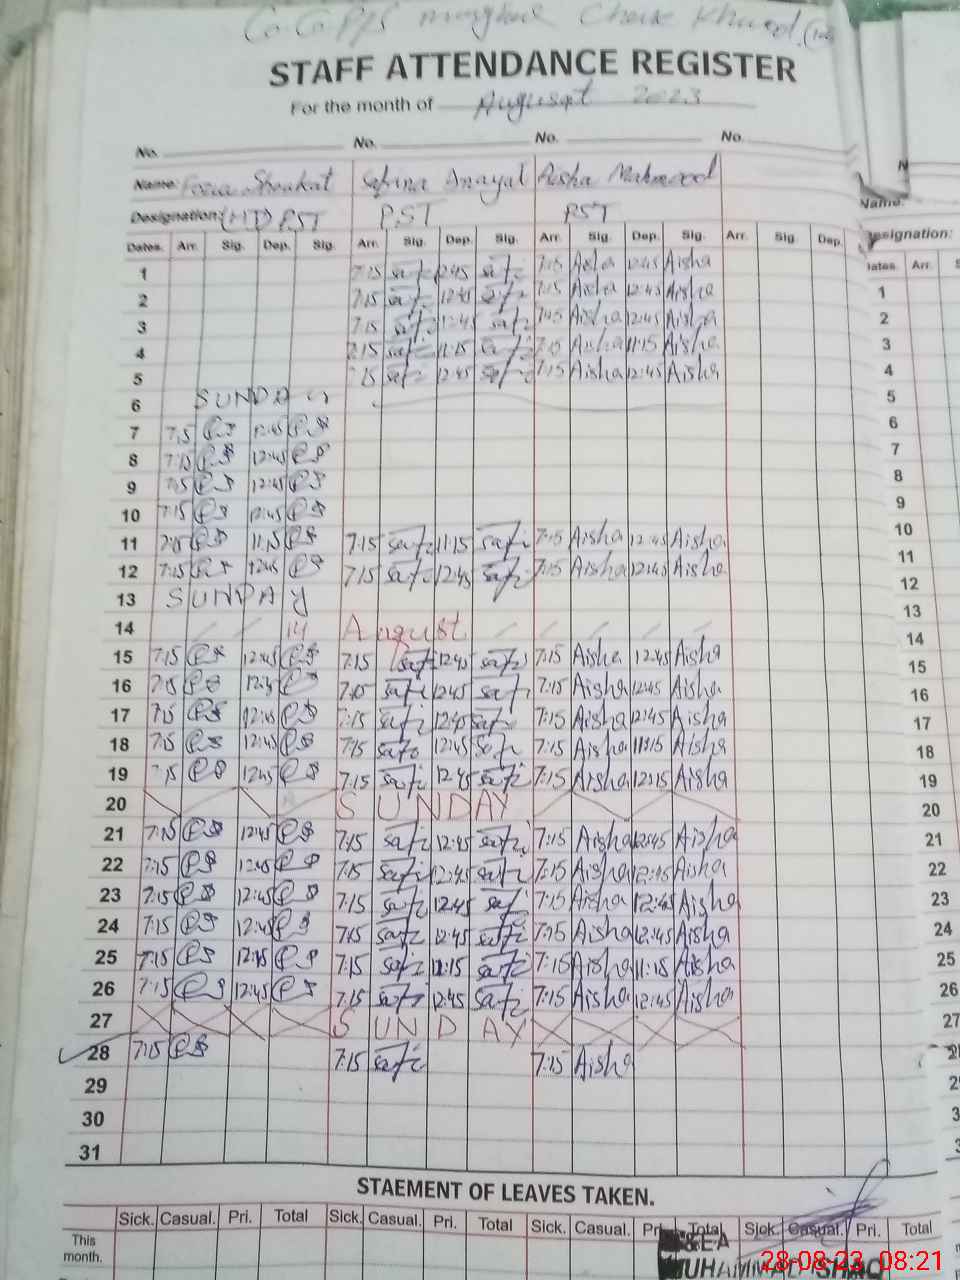 STAFF ATTENDANCE REGISTER
For the month of Augusat 2023
No. No. No. No.
Name: Shoukat Safina Anayat Aisha Mahmood
Designation: (HT) PST PST PST
Dates. Arr. Sig. Dep. Sig. Arr. Sig. Dep. Sig. Arr. Sig. Dep. Sig. Arr. Sig. Dep.
1 7:15 safi 12:45 safi 7:15 Aisha 12:45 Aisha
2 7:15 safi 12:45 safi 7:15 Aisha 12:45 Aisha
3 7:15 safi 12:45 safi 7:15 Aisha 12:45 Aisha
4 7:15 safi 11:15 safi 7:15 Aisha 11:15 Aisha
5 7:15 safi 12:45 safi 7:15 Aisha 12:45 Aisha
6 SUNDAY
7 7:15 12:45
8 7:15 12:45
9 7:15 12:45
10 7:15 12:45
11 7:15 11:15 7:15 safi 11:15 safi 7:15 Aisha 12:45 Aisha
12 7:15 12:45 7:15 safi 12:45 safi 7:15 Aisha 12:45 Aisha
13 SUNDAY
14 14 August
15 7:15 12:45 7:15 safi 12:45 safi 7:15 Aisha 12:45 Aisha
16 7:15 12:45 7:15 safi 12:45 safi 7:15 Aisha 12:45 Aisha
17 7:15 12:45 7:15 safi 12:45 safi 7:15 Aisha 12:45 Aisha
18 7:15 12:45 7:15 safi 12:45 safi 7:15 Aisha 11:15 Aisha
19 7:15 12:45 7:15 safi 12:45 safi 7:15 Aisha 12:15 Aisha
20 SUNDAY
21 7:15 12:45 7:15 safi 12:45 safi 7:15 Aisha 12:45 Aisha
22 7:15 12:45 7:15 safi 12:45 safi 7:15 Aisha 12:45 Aisha
23 7:15 12:45 7:15 safi 12:45 saf 7:15 Aisha 12:45 Aisha
24 7:15 12:45 7:15 safi 12:45 safi 7:15 Aisha 12:45 Aisha
25 7:15 12:45 7:15 safi 11:15 safi 7:15 Aisha 11:15 Aisha
26 7:15 12:45 7:15 safi 12:45 safi 7:15 Aisha 12:45 Aisha
27 SUNDAY
28 7:15 7:15 safi 7:15 Aisha
29
30
31
STAEMENT OF LEAVES TAKEN.
Sick. Casual. Pri. Total Sick. Casual. Pri. Total Sick. Casual. Pri. Total Sick. Casual. Pri. Total
This month.
MUHAMMAD ISHAQ
28-08-23 08:21
Name:
Designation:
Dates. Arr.
1
2
3
4
5
6
7
8
9
10
11
12
13
14
15
16
17
18
19
20
21
22
23
24
25
26
27